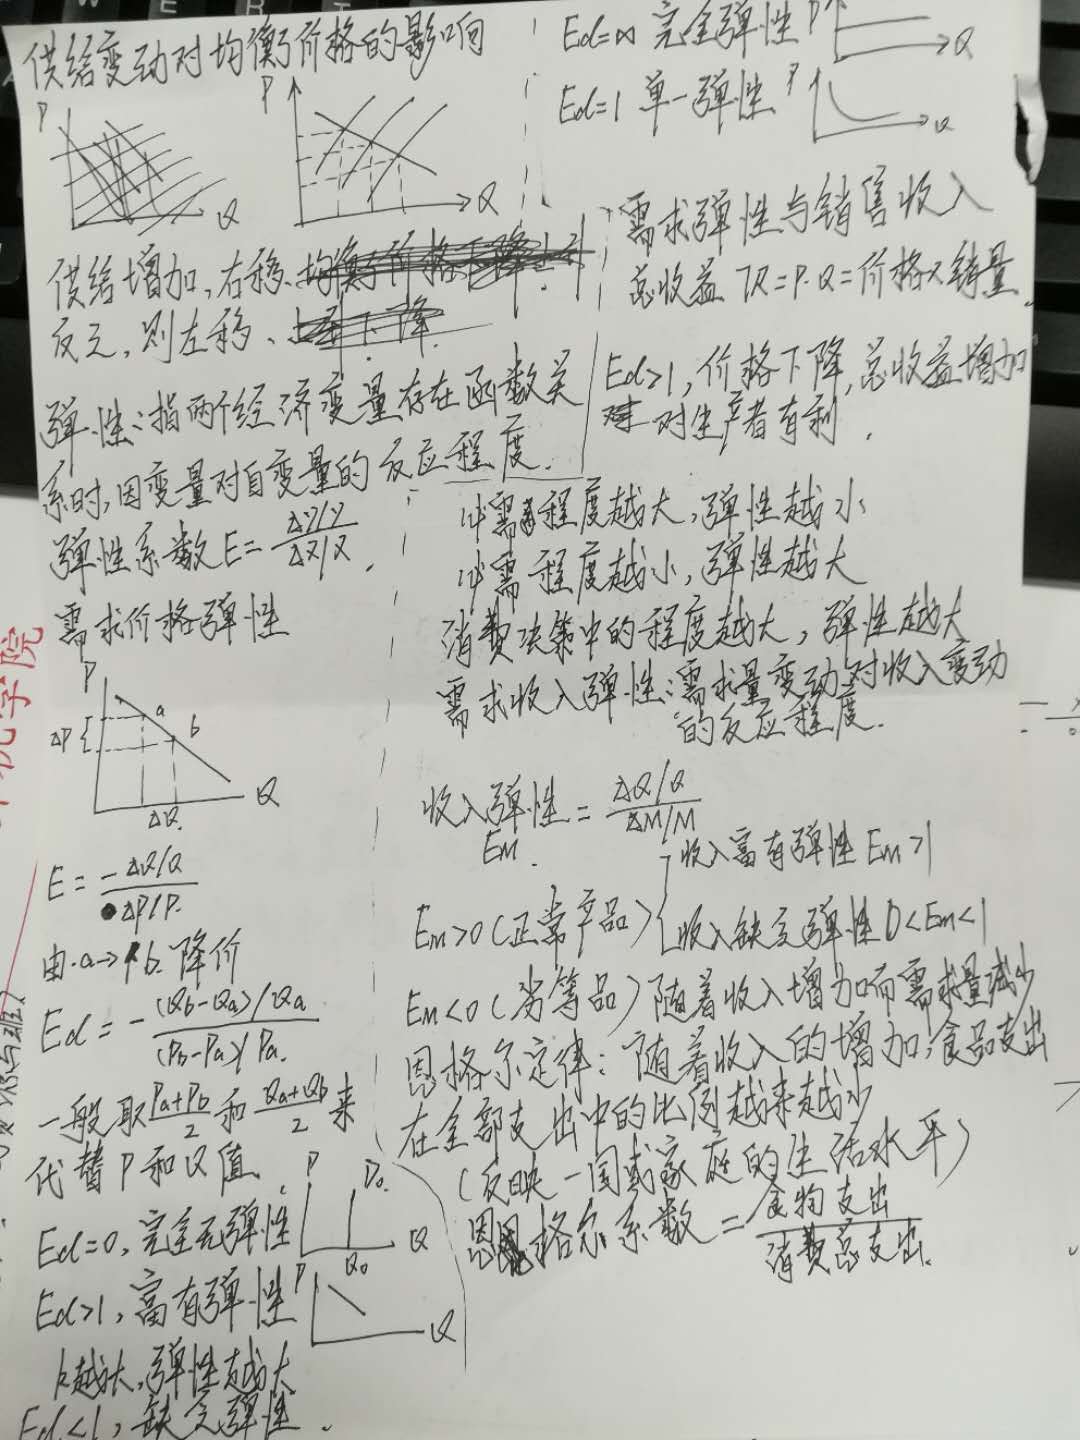 供给变动对均衡价格的影响
P
Q
P
Q
供给增加,右移、均衡价格下降上升
反之,则左移、上升下降
弹性:指两个经济变量存在函数关
系时,因变量对自变量的反应程度.
弹性系数E=
ΔY/Y
ΔX/X
需求价格弹性
P
a
b
ΔP
Q
ΔQ.
E=
-ΔQ/Q
ΔP/P.
由.a→b.降价
Ed=-
(Qb-Qa)/Qa
(Pb-Pa)/Pa.
一般取 Pa+Pb/2 和 Qa+Qb/2 来
代替P和Q值
Ed=0,完全无弹性
P
D0.
Q
Q0
Ed>1,富有弹性
P
Q
越大,弹性越大
Ed<1,缺乏弹性.
Ed=∞ 完全弹性
P
Q
Ed=1 单一弹性
P
Q
需求弹性与销售收入
总收益 TR=P·Q=价格×销量.
Ed>1,价格下降,总收益增加
对生产者有利.
必需程度越大,弹性越小
必需程度越小,弹性越大
消费决策中的程度越大,弹性越大
需求收入弹性:需求量变动对收入变动
的反应程度.
收入弹性=
ΔQ/Q
ΔM/M
EM.
收入富有弹性 EM>1
EM>0(正常产品)
收入缺乏弹性 0<EM<1
EM<0(劣等品)随着收入增加而需求量减少
恩格尔定律:随着收入的增加,食品支出
在全部支出中的比例越来越少
(反映一国或家庭的生活水平)
恩格尔系数=
食物支出
消费总支出.
学院